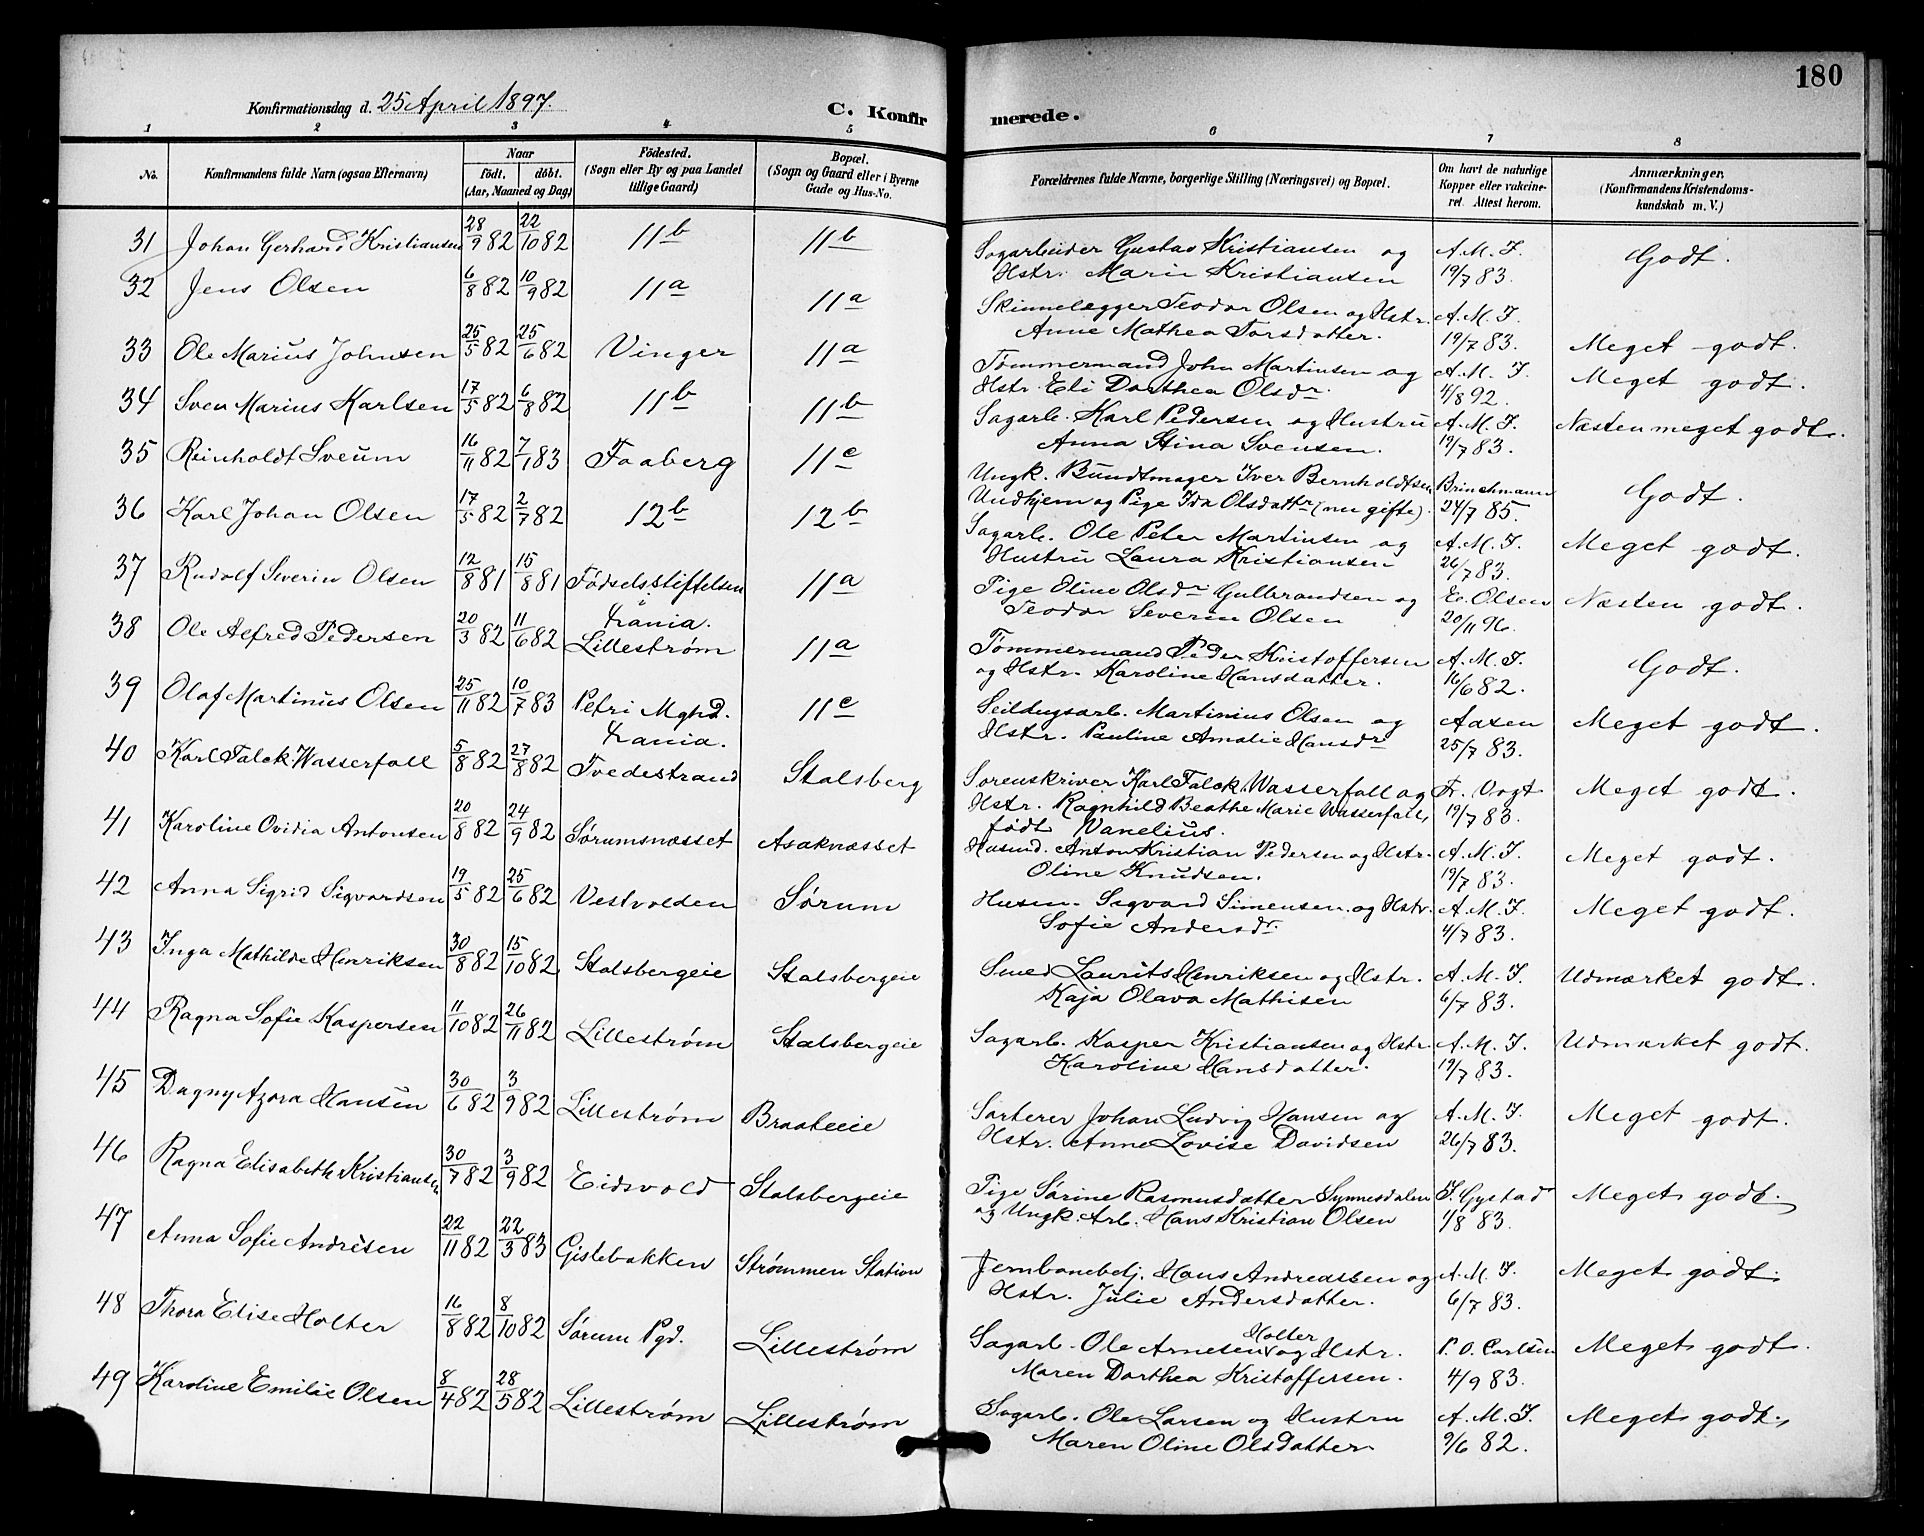 180
Konfirmationsdag d. 25 April 1897.
C. Konfir
merede.
1 2 3 4 5 6 7 8
No. Konfirmandens fulde Navn (ogsaa Efternavn) Naar født. døbt. (Aar, Maaned og Dag) Födested. (Sogn eller By og paa Landet tillige Gaard) Bopæl. (Sogn og Gaard eller i Byerne Gade og Hus-No. Forældrenes fulde Navne, borgerlige Stilling (Næringsvei) og Bopæl. Om havt de naturlige Kopper eller vakcineret. Attest herom. Anmærkninger. (Konfirmandens Kristendomskundskab m. V.)
31 Johan Gerhard Kristiansen 28/9 82 22/10 82 11b 11b Sagarbeider Gustav Kristiansen og A. M. I. Godt.
Hstr. Marie Kristiansen 19/7 83.
32 Jens Olsen 6/8 82 10/9 82 11a 11a Skinnelægger Teodor Olsen og Hstr. A. M. I. Meget godt.
Anne Mathea Torsdatter. 19/7 83.
33 Ole Marius Johnsen 25/5 82 25/6 82 Vinger 11a Tømmermand John Martinsen og A. M. I. Meget godt.
Hstr. Eli Dorthea Olsdr. 4/8 92.
34 Sven Marius Karlsen 17/5 82 6/8 82 11b 11b Sagarb. Karl Pedersen og Hustru A. M. I. Næsten meget godt.
Anna Stina Svensen. 19/7 83.
35 Reinholdt Sveum 16/11 82 7/1 83 Faaberg 11c Ungk. Bundtmager Iver Bernholdtsen Brinchmann Godt.
Undhjem og Pige Ida Olsdattr (nu gifte). 24/7 85.
36 Karl Johan Olsen 17/5 82 2/7 82 12b 12b Sagarb. Ole Peter Martinsen og A. M. I. Meget godt.
Hustru Laura Kristiansen 26/7 83.
37 Rudolf Severin Olsen 12/8 81 15/8 81 Fødselsstiftelsen 11a Pige Oline Olsdr. Gulbrandsen og E. Olsen Næsten godt.
Krania. Teodor Severin Olsen 20/11 96.
38 Ole Alfred Pedersen 20/3 82 11/6 82 Lillestrøm 11a Tømmermand Peder Kristoffersen A. M. I. Godt.
og Hstr. Karoline Hansdatter. 16/6 82.
39 Olaf Martinus Olsen 25/11 82 10/7 83 Petri Mghd. 11c Seildugsarb. Martinius Olsen og Aaxen Meget godt.
Krania. Hstr. Pauline Amalie Hansdr 25/7 83.
40 Karl Falck Wasserfall 5/8 82 27/8 82 Tvedestrand Stalsberg Sorenskriver Karl Falck Wasserfall og Fr. Vogt Meget godt.
Hstr. Ragnhild Beathe Marie Wasserfall, 19/7 83.
født Wanelius.
41 Karoline Ovidia Antonsen 20/8 82 24/9 82 Sørumsnæsset Asaknæsset Husmd. Anton Kristian Pedersen og Hstr. A. M. I. Meget godt.
Oline Knudsen. 19/7 83.
42 Anna Sigrid Sigvardsen 19/5 82 25/6 82 Vestvolden Sørum Husm. Sigvard Simensen og Hstr. A. M. I. Meget godt.
Sofie Andersdr. 4/7 83.
43 Inga Mathilde Henriksen 30/8 82 15/10 82 Stalsbergeie Stalsbergeie Smed Laurits Henriksen og Hstr. A. M. I. Udmærket godt.
Kaja Olava Mathisen 6/7 83.
44 Ragna Sofie Kaspersen 11/10 82 26/11 82 Lillestrøm Stalsbergeie Sagarb. Kasper Kristiansen og Hstr. A. M. I. Udmærket godt.
Karoline Hansdatter. 19/7 83.
45 Dagny Azora Hansen 30/6 82 3/9 82 Lillestrøm Braateeie Sorterer Johan Ludvig Hansen og A. M. I. Meget godt.
Hstr. Anne Lovise Davidsen 26/7 83.
46 Ragna Elisabeth Kristiansen 30/7 82 3/9 82 Eidsvold Stalsbergeie Pige Sørine Rasmusdatter Synnesdalen I. Gystad Meget godt.
og Ungk. Arb. Hans Kristian Olsen 1/8 83.
47 Anna Sofie Andrésen 22/11 82 22/3 83 Gistebakken Strømmen Station Jernbanebetj. Hans Andreassen og A. M. I. Meget godt.
Hstr. Julie Andersdatter. 6/7 83.
48 Thora Elise Holter 16/8 82 8/10 82 Sørum Pgd. Lillestrøm Sagarb. Ole Arnesen Holter og Hstr. P. O. Carlsen Meget godt.
Maren Dorthea Kristoffersen. 4/9 83.
49 Karoline Emilie Olsen 8/4 82 28/5 82 Lillestrøm Lillestrøm Sagarb. Ole Larsen og Hustru A. M. I. Meget godt.
Maren Oline Olsdatter. 9/6 82.